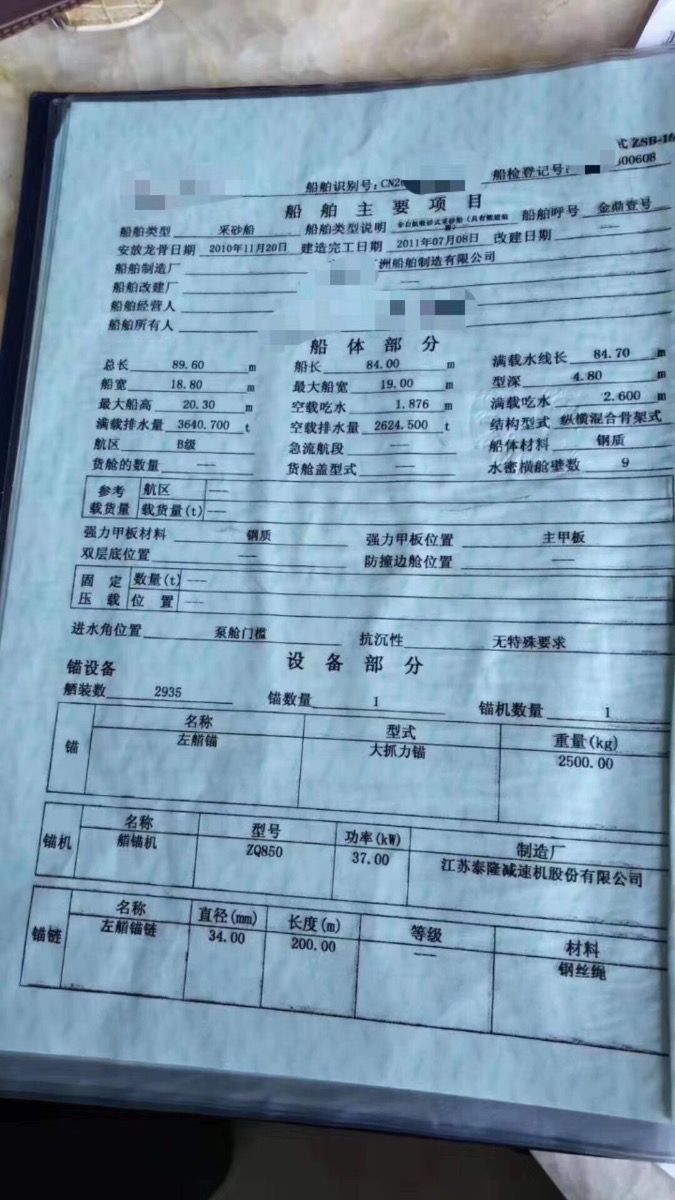 式 ZSB-16
船舶识别号:CN2 船检登记号: 00608
船舶主要项目
船舶类型 采砂船 船舶类型说明 船舶呼号 金鼎壹号
安放龙骨日期 2010年11月20日 建造完工日期 2011年07月08日 改建日期 —
船舶制造厂 洲船舶制造有限公司
船舶改建厂 —
船舶经营人
船舶所有人
船体部分
总长 89.60 m 船长 84.00 m 满载水线长 84.70 m
船宽 18.80 m 最大船宽 19.00 m 型深 4.80 m
最大船高 20.30 m 空载吃水 1.876 m 满载吃水 2.600 m
满载排水量 3640.700 t 空载排水量 2624.500 t 结构型式 纵横混合骨架式
航区 B级 急流航段 — 船体材料 钢质
货舱的数量 — 货舱盖型式 — 水密横舱壁数 9
参考 航区 —
载货量 载货量(t) —
强力甲板材料 钢质 强力甲板位置 主甲板
双层底位置 — 防撞边舱位置 —
固定 数量(t) —
压载 位置 —
进水角位置 泵舱门槛 抗沉性 无特殊要求
设备部分
锚设备
舾装数 2935 锚数量 1 锚机数量 1
锚 名称 型式 重量(kg)
左艏锚 大抓力锚 2500.00
锚机 名称 型号 功率(kW) 制造厂
艏锚机 ZQ850 37.00 江苏泰隆减速机股份有限公司
锚链 名称 直径(mm) 长度(m) 等级 材料
左艏锚链 34.00 200.00 — 钢丝绳